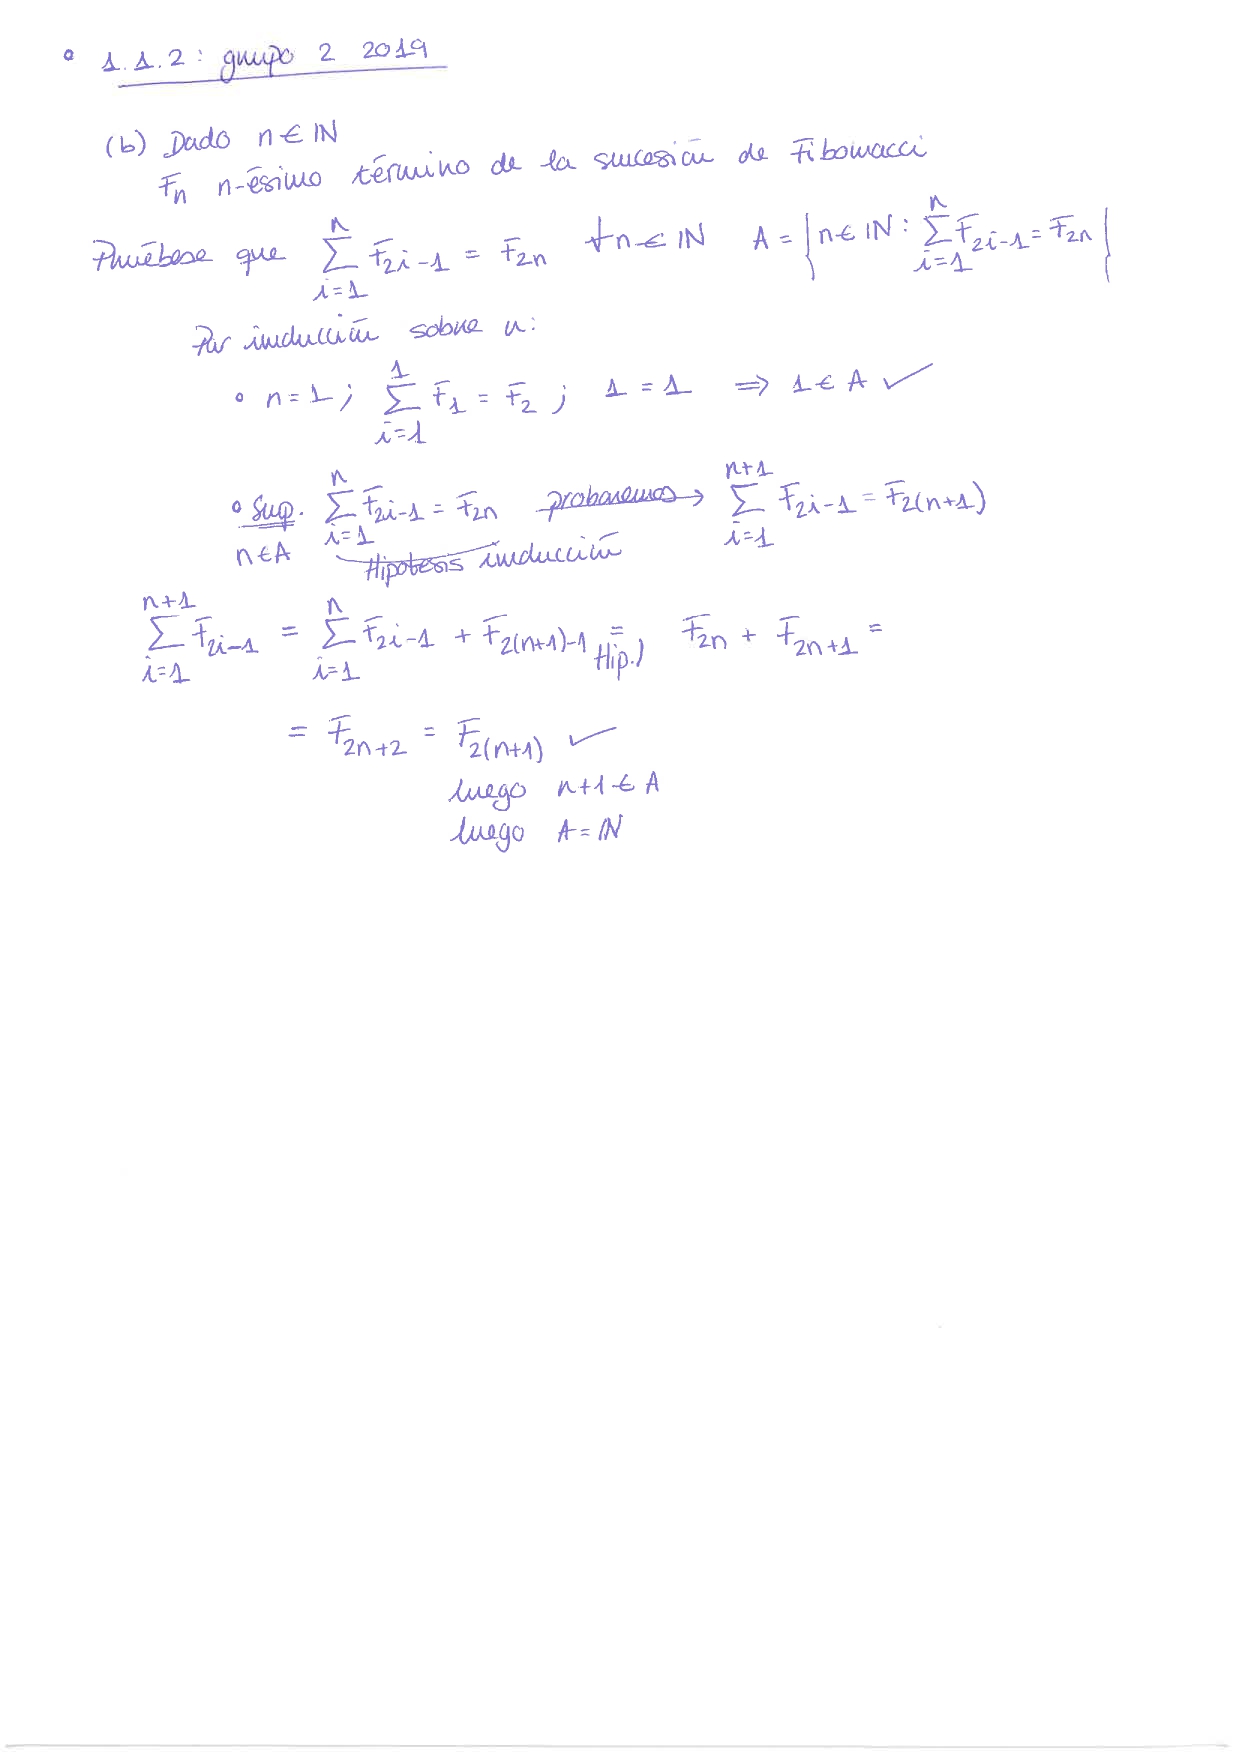 • 1.1.2: grupo 2 2019
(b) Dado n ∈ ℕ
Fₙ n-ésimo término de la sucesión de Fibonacci
Pruébese que ∑_{i=1}^{n} F_{2i-1} = F_{2n} ∀n ∈ ℕ A = {n ∈ ℕ : ∑_{i=1}^{n} F_{2i-1} = F_{2n}}
Por inducción sobre n:
• n = 1 ; ∑_{i=1}^{1} F_1 = F_2 ; 1 = 1 ⇒ 1 ∈ A ✓
• Sup. ∑_{i=1}^{n} F_{2i-1} = F_{2n} probaremos → ∑_{i=1}^{n+1} F_{2i-1} = F_{2(n+1)}
n ∈ A Hipótesis inducción
∑_{i=1}^{n+1} F_{2i-1} = ∑_{i=1}^{n} F_{2i-1} + F_{2(n+1)-1} = Hip.) F_{2n} + F_{2n+1} =
= F_{2n+2} = F_{2(n+1)} ✓
luego n+1 ∈ A
luego A = ℕ